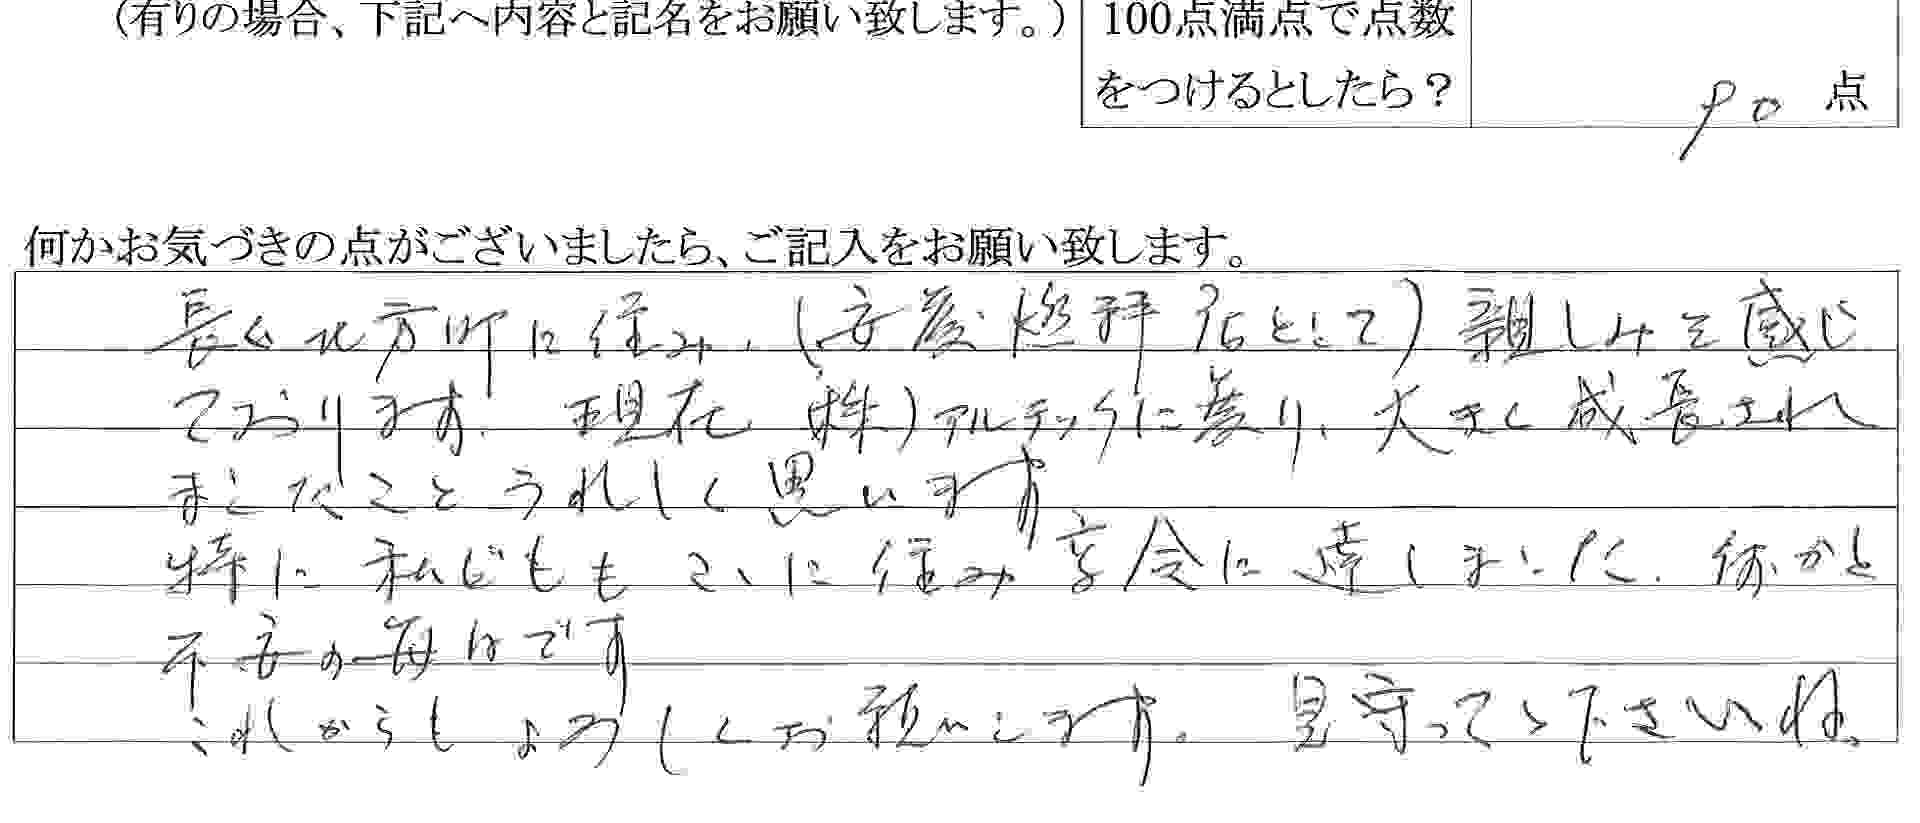 (有りの場合、下記へ内容と記名をお願い致します。)
100点満点で点数
をつけるとしたら？
90 点
何かお気づきの点がございましたら、ご記入をお願い致します。
長く北方町に住み、(安藤燃料店として) 親しみを感じ
ております。現在 (株)アルテックに変り、大きく成長され
ましたことうれしく思います
特に私どももここに住み高令に達しました。何かと
不安の毎日です
これからもよろしくお願いします。見守って下さいね。